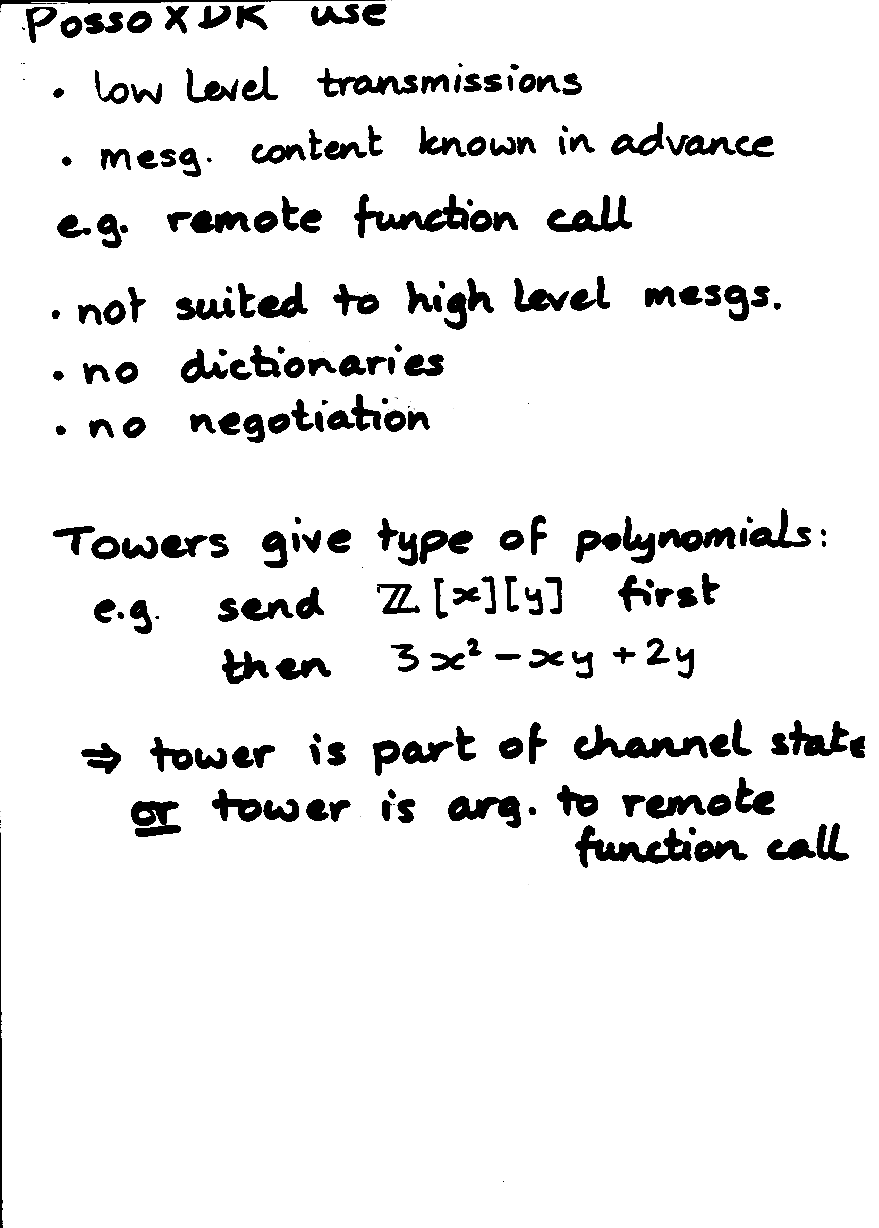 Posso XDR use
• low level transmissions
• mesg. content known in advance
e.g. remote function call
• not suited to high level mesgs.
• no dictionaries
• no negotiation
Towers give type of polynomials:
e.g. send ℤ[x][y] first
then 3x² - xy + 2y
⇒ tower is part of channel state
or tower is arg. to remote
function call